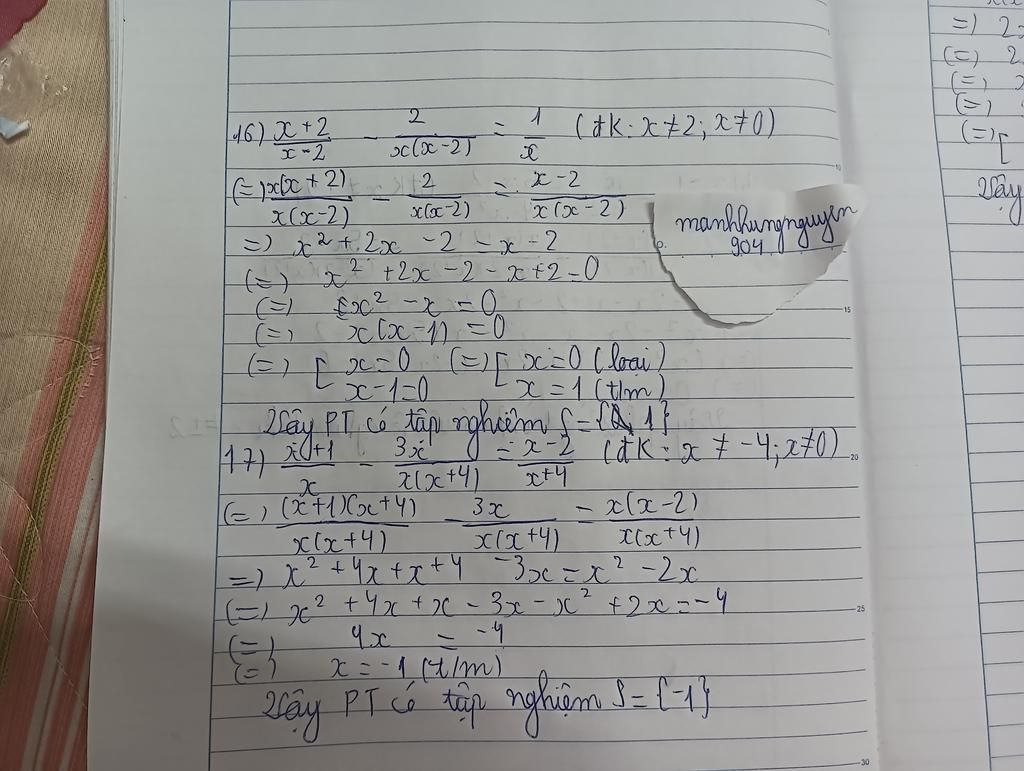 16) x+2/x-2 - 2/x(x-2) = 1/x (đk: x≠2; x≠0)
(=) x(x+2)/x(x-2) - 2/x(x-2) = x-2/x(x-2)
=) x² + 2x - 2 = x - 2
(=) x² + 2x - 2 - x + 2 = 0
(=) x² - x = 0
(=) x(x-1) = 0
(=) [ x=0 (=) [ x=0 (loại)
x-1=0 x=1 (t/m)
Vậy PT có tập nghiệm S={1}
17) x+1/x - 3x/x(x+4) = x-2/x+4 (đk: x ≠ -4; x≠0)
(=) (x+1)(x+4)/x(x+4) - 3x/x(x+4) = x(x-2)/x(x+4)
=) x² + 4x + x + 4 - 3x = x² - 2x
(=) x² + 4x + x - 3x - x² + 2x = -4
(=) 4x = -4
(=) x = -1 (t/m)
Vậy PT có tập nghiệm S={-1}
manhhungnguyen
904
10
15
20
25
30
=) 2
(=) 2
(=)
(=)
(=) [
Vậy